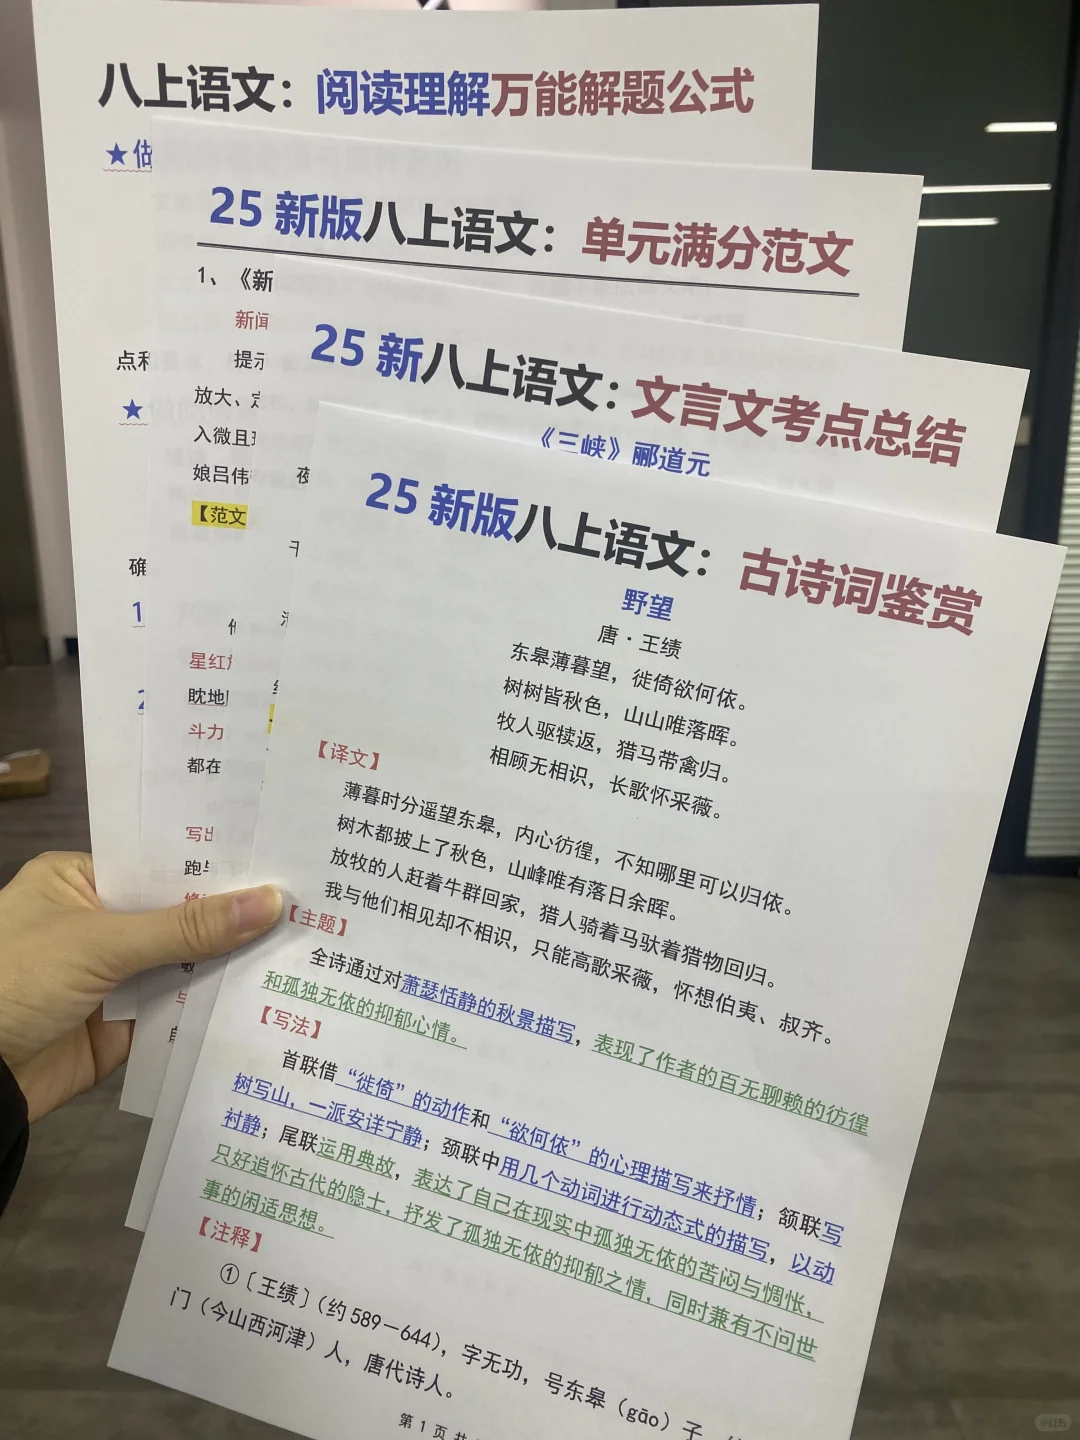 八上语文：阅读理解万能解题公式
★做
点和
★
确
1
2
25 新版八上语文：单元满分范文
1、《新
新闻
提示
放大、定
入微且
娘吕伟
【范文
星红
眈地
斗力
都在
写出
跑
25 新八上语文：文言文考点总结
《三峡》郦道元
25 新版八上语文：古诗词鉴赏
野望
唐·王绩
东皋薄暮望，徙倚欲何依。
树树皆秋色，山山唯落晖。
牧人驱犊返，猎马带禽归。
相顾无相识，长歌怀采薇。
【译文】
薄暮时分遥望东皋，内心彷徨，不知哪里可以归依。
树木都披上了秋色，山峰唯有落日余晖。
放牧的人赶着牛群回家，猎人骑着马驮着猎物回归。
我与他们相见却不相识，只能高歌采薇，怀想伯夷、叔齐。
【主题】
全诗通过对萧瑟恬静的秋景描写，表现了作者的百无聊赖的彷徨
和孤独无依的抑郁心情。
【写法】
首联借“徙倚”的动作和“欲何依”的心理描写来抒情；颔联写
树写山，一派安详宁静；颈联中用几个动词进行动态式的描写，以动
衬静；尾联运用典故，表达了自己在现实中孤独无依的苦闷与惆怅，
只好追怀古代的隐士，抒发了孤独无依的抑郁之情，同时兼有不问世
事的闲适思想。
【注释】
①〔王绩〕（约 589－644），字无功，号东皋（gāo）子，
门（今山西河津）人，唐代诗人。
第 1 页 共
小红书